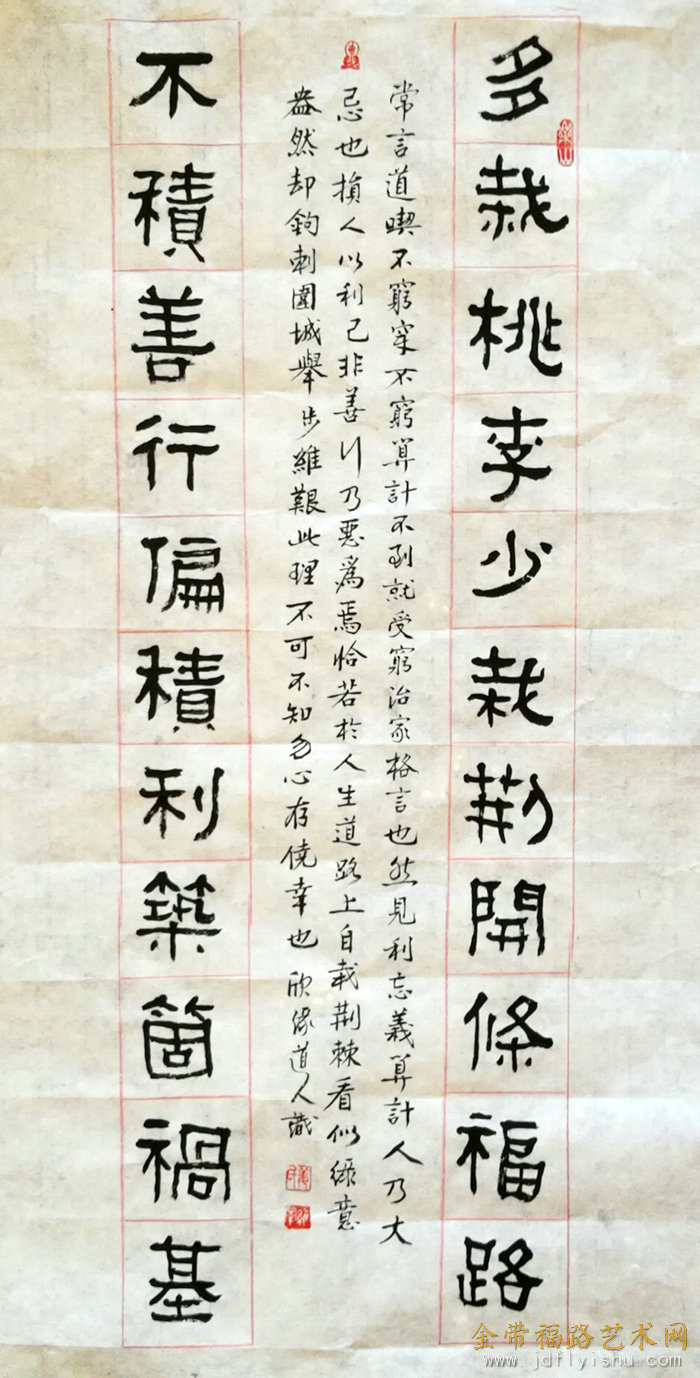 多栽桃李少栽荆開條福路
常言道喫不窮穿不窮算計不到就受窮治家格言也然見利忘義算計人乃大
忌也損人以利己非善行乃惡爲焉恰若於人生道路上自栽荆棘看似綠意
盎然却鉤刺圍城舉步維艱此理不可不知勿心存僥幸也 欣缘道人識
不積善行偏積利築箇禍基
金带福路艺术网
www.jdflyishu.com